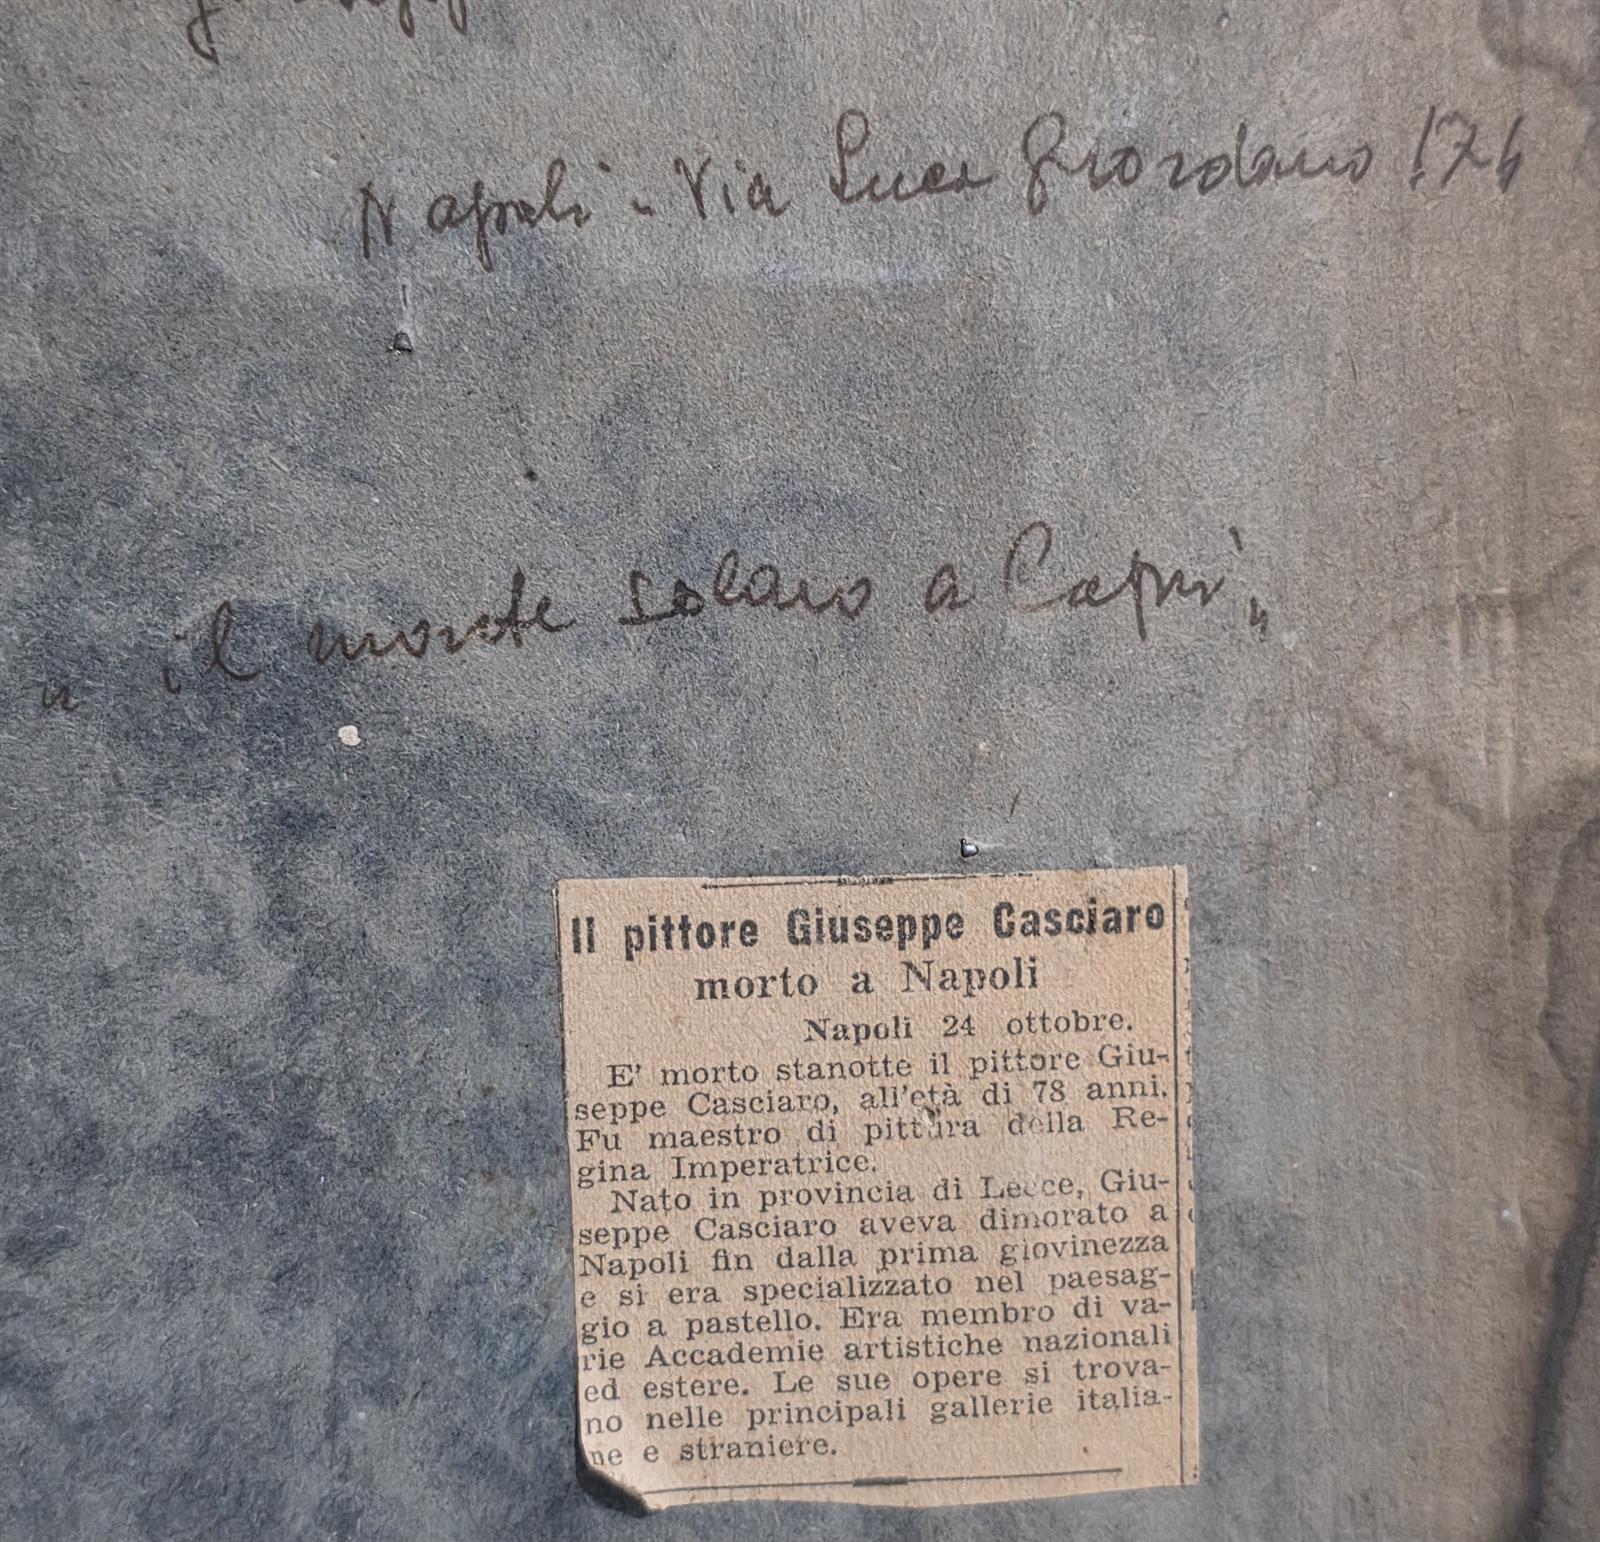 Napoli - Via Luca Giordano 174
" il monte solaro a Capri "
Il pittore Giuseppe Casciaro
morto a Napoli
Napoli 24 ottobre.
E' morto stanotte il pittore Giu-
seppe Casciaro, all'età di 78 anni.
Fu maestro di pittura della Re-
gina Imperatrice.
Nato in provincia di Lecce, Giu-
seppe Casciaro aveva dimorato a
Napoli fin dalla prima giovinezza
e si era specializzato nel paesag-
gio a pastello. Era membro di va-
rie Accademie artistiche nazionali
ed estere. Le sue opere si trova-
no nelle principali gallerie italia-
ne e straniere.